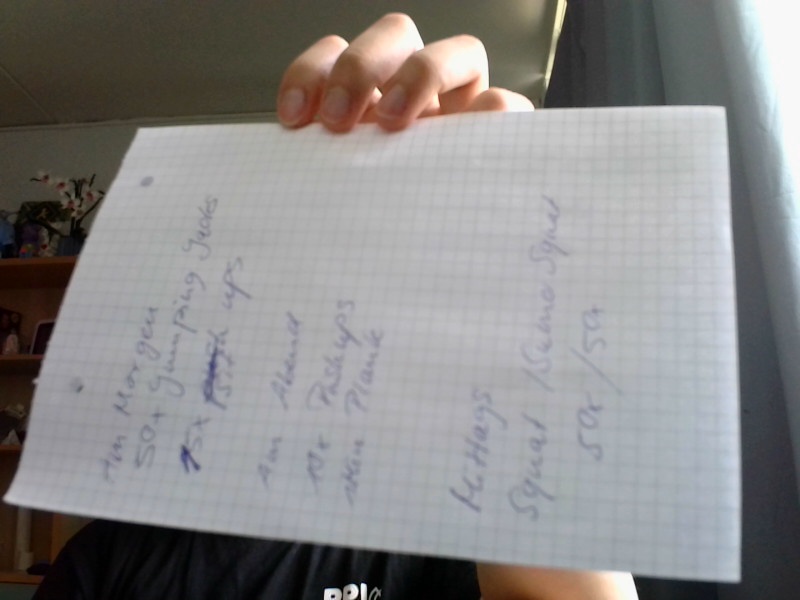 Am Morgen
50x Jumping Jacks
15x ups
Am Abend
Pushups
Plank
Mittags
Squat / Sumo Squat
50x / 50x